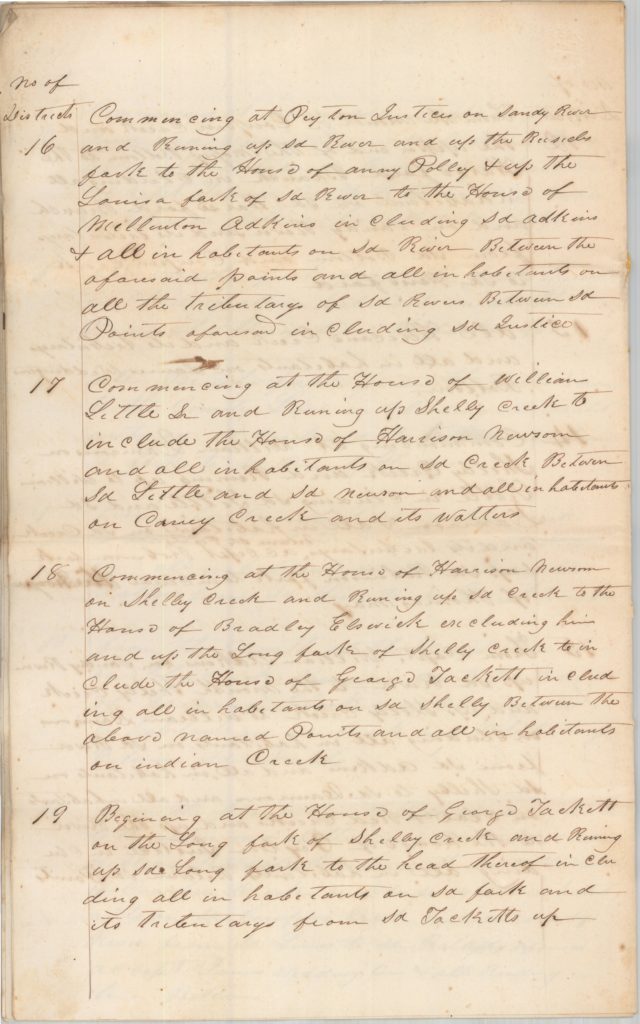 no of
Districts
16
Commencing at Peyton Justices on Sandy River
and Runing up sd River and up the Russels
fork to the House of anny Polley & up the
Louisa fork of sd River to the House of
Adkins in cluding sd adkins
& all in habetants on sd River Between the
aforesaid points and all in habetants on
all the tributarys of sd Rivers Between sd
Points aforesad in cluding sd Justice
17
Commencing at the House of William
Little Sr and Runing up Shelly Creek to
in clude the House of Harrison Newsom
and all in habetants on sd Creek Betwen
sd Little and sd Newsom and all in habetants
on Caney Creek and its watters
18
Commencing at the House of Harrison Newsom
on Shelby Creek and Runing up sd Creek to the
House of Bradley Elswick excluding him
and up the Long fork of Shelly Creek to in
clude the House of George Tackett in clud
ing all in habetants on sd Shelly Between the
above named Points and all in habetants
on indian Creek
19
Begining at the House of George Tackett
on the Long fork of Shelby Creek and Runing
up sd Long fork to the head thereof in clu
ding all in habetants on sd fork and
its tributarys from sd Tacketts up